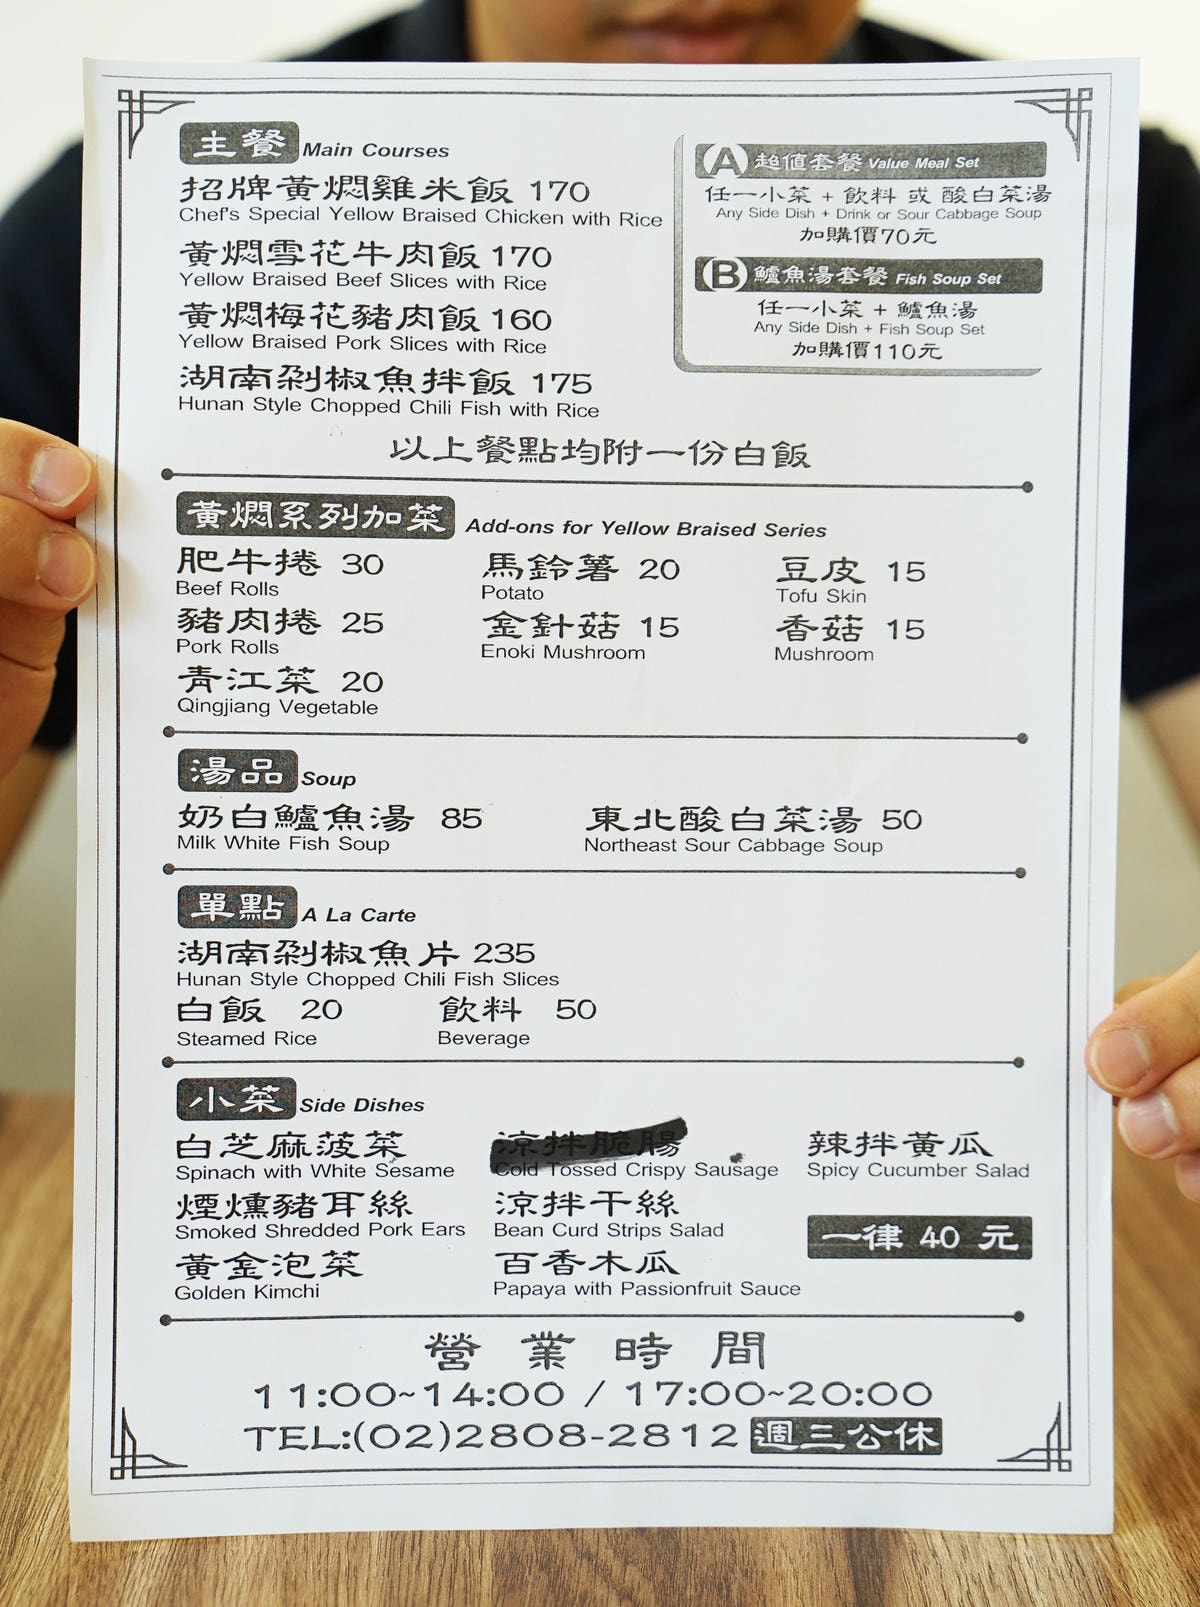 主餐 Main Courses
招牌黃燜雞米飯 170
Chef's Special Yellow Braised Chicken with Rice
黃燜雪花牛肉飯 170
Yellow Braised Beef Slices with Rice
黃燜梅花豬肉飯 160
Yellow Braised Pork Slices with Rice
湖南剁椒魚拌飯 175
Hunan Style Chopped Chili Fish with Rice
A 超值套餐 Value Meal Set
任一小菜 + 飲料 或 酸白菜湯
Any Side Dish + Drink or Sour Cabbage Soup
加購價70元
B 鱸魚湯套餐 Fish Soup Set
任一小菜 + 鱸魚湯
Any Side Dish + Fish Soup Set
加購價110元
以上餐點均附一份白飯
黃燜系列加菜 Add-ons for Yellow Braised Series
肥牛捲 30 馬鈴薯 20 豆皮 15
Beef Rolls Potato Tofu Skin
豬肉捲 25 金針菇 15 香菇 15
Pork Rolls Enoki Mushroom Mushroom
青江菜 20
Qingjiang Vegetable
湯品 Soup
奶白鱸魚湯 85 東北酸白菜湯 50
Milk White Fish Soup Northeast Sour Cabbage Soup
單點 A La Carte
湖南剁椒魚片 235
Hunan Style Chopped Chili Fish Slices
白飯 20 飲料 50
Steamed Rice Beverage
小菜 Side Dishes
白芝麻菠菜 涼拌脆腸 辣拌黃瓜
Spinach with White Sesame Cold Tossed Crispy Sausage Spicy Cucumber Salad
煙燻豬耳絲 涼拌干絲
Smoked Shredded Pork Ears Bean Curd Strips Salad
一律 40 元
黃金泡菜 百香木瓜
Golden Kimchi Papaya with Passionfruit Sauce
營業時間
11:00~14:00 / 17:00~20:00
TEL:(02)2808-2812 週三公休